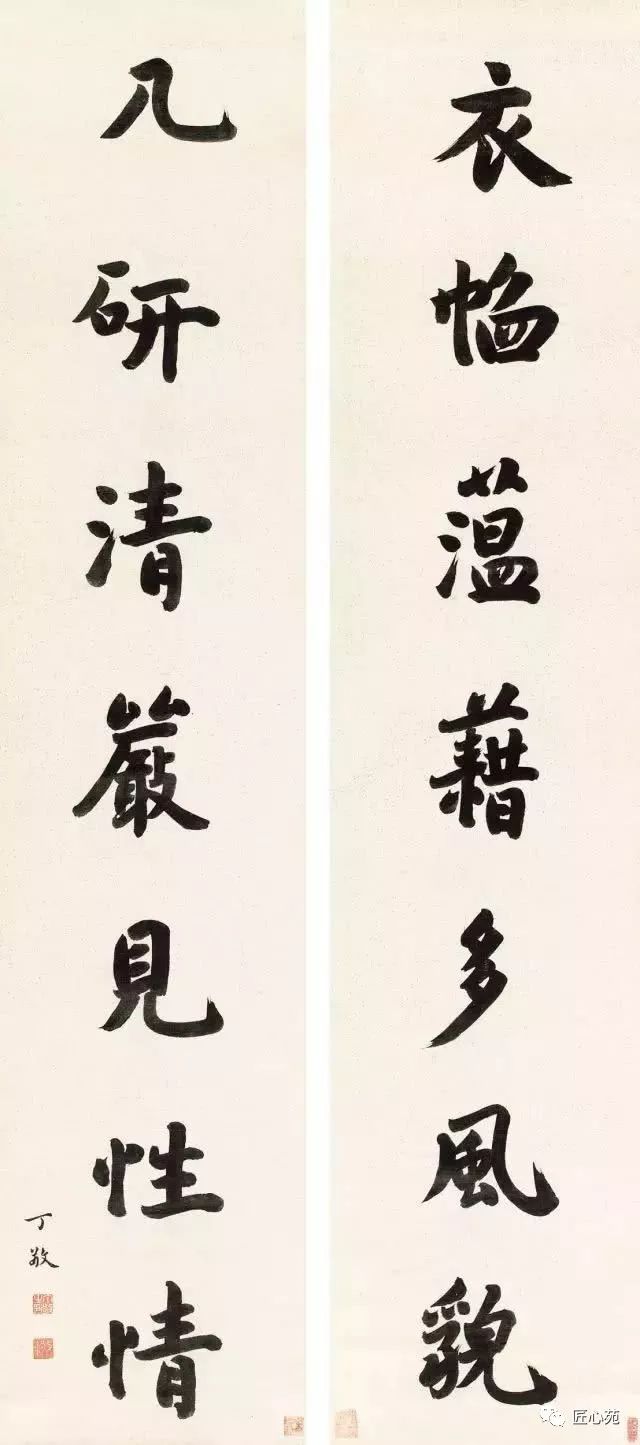 衣㡊蕰藉多風貌
几研清嚴見性情
丁敬
匠心苑